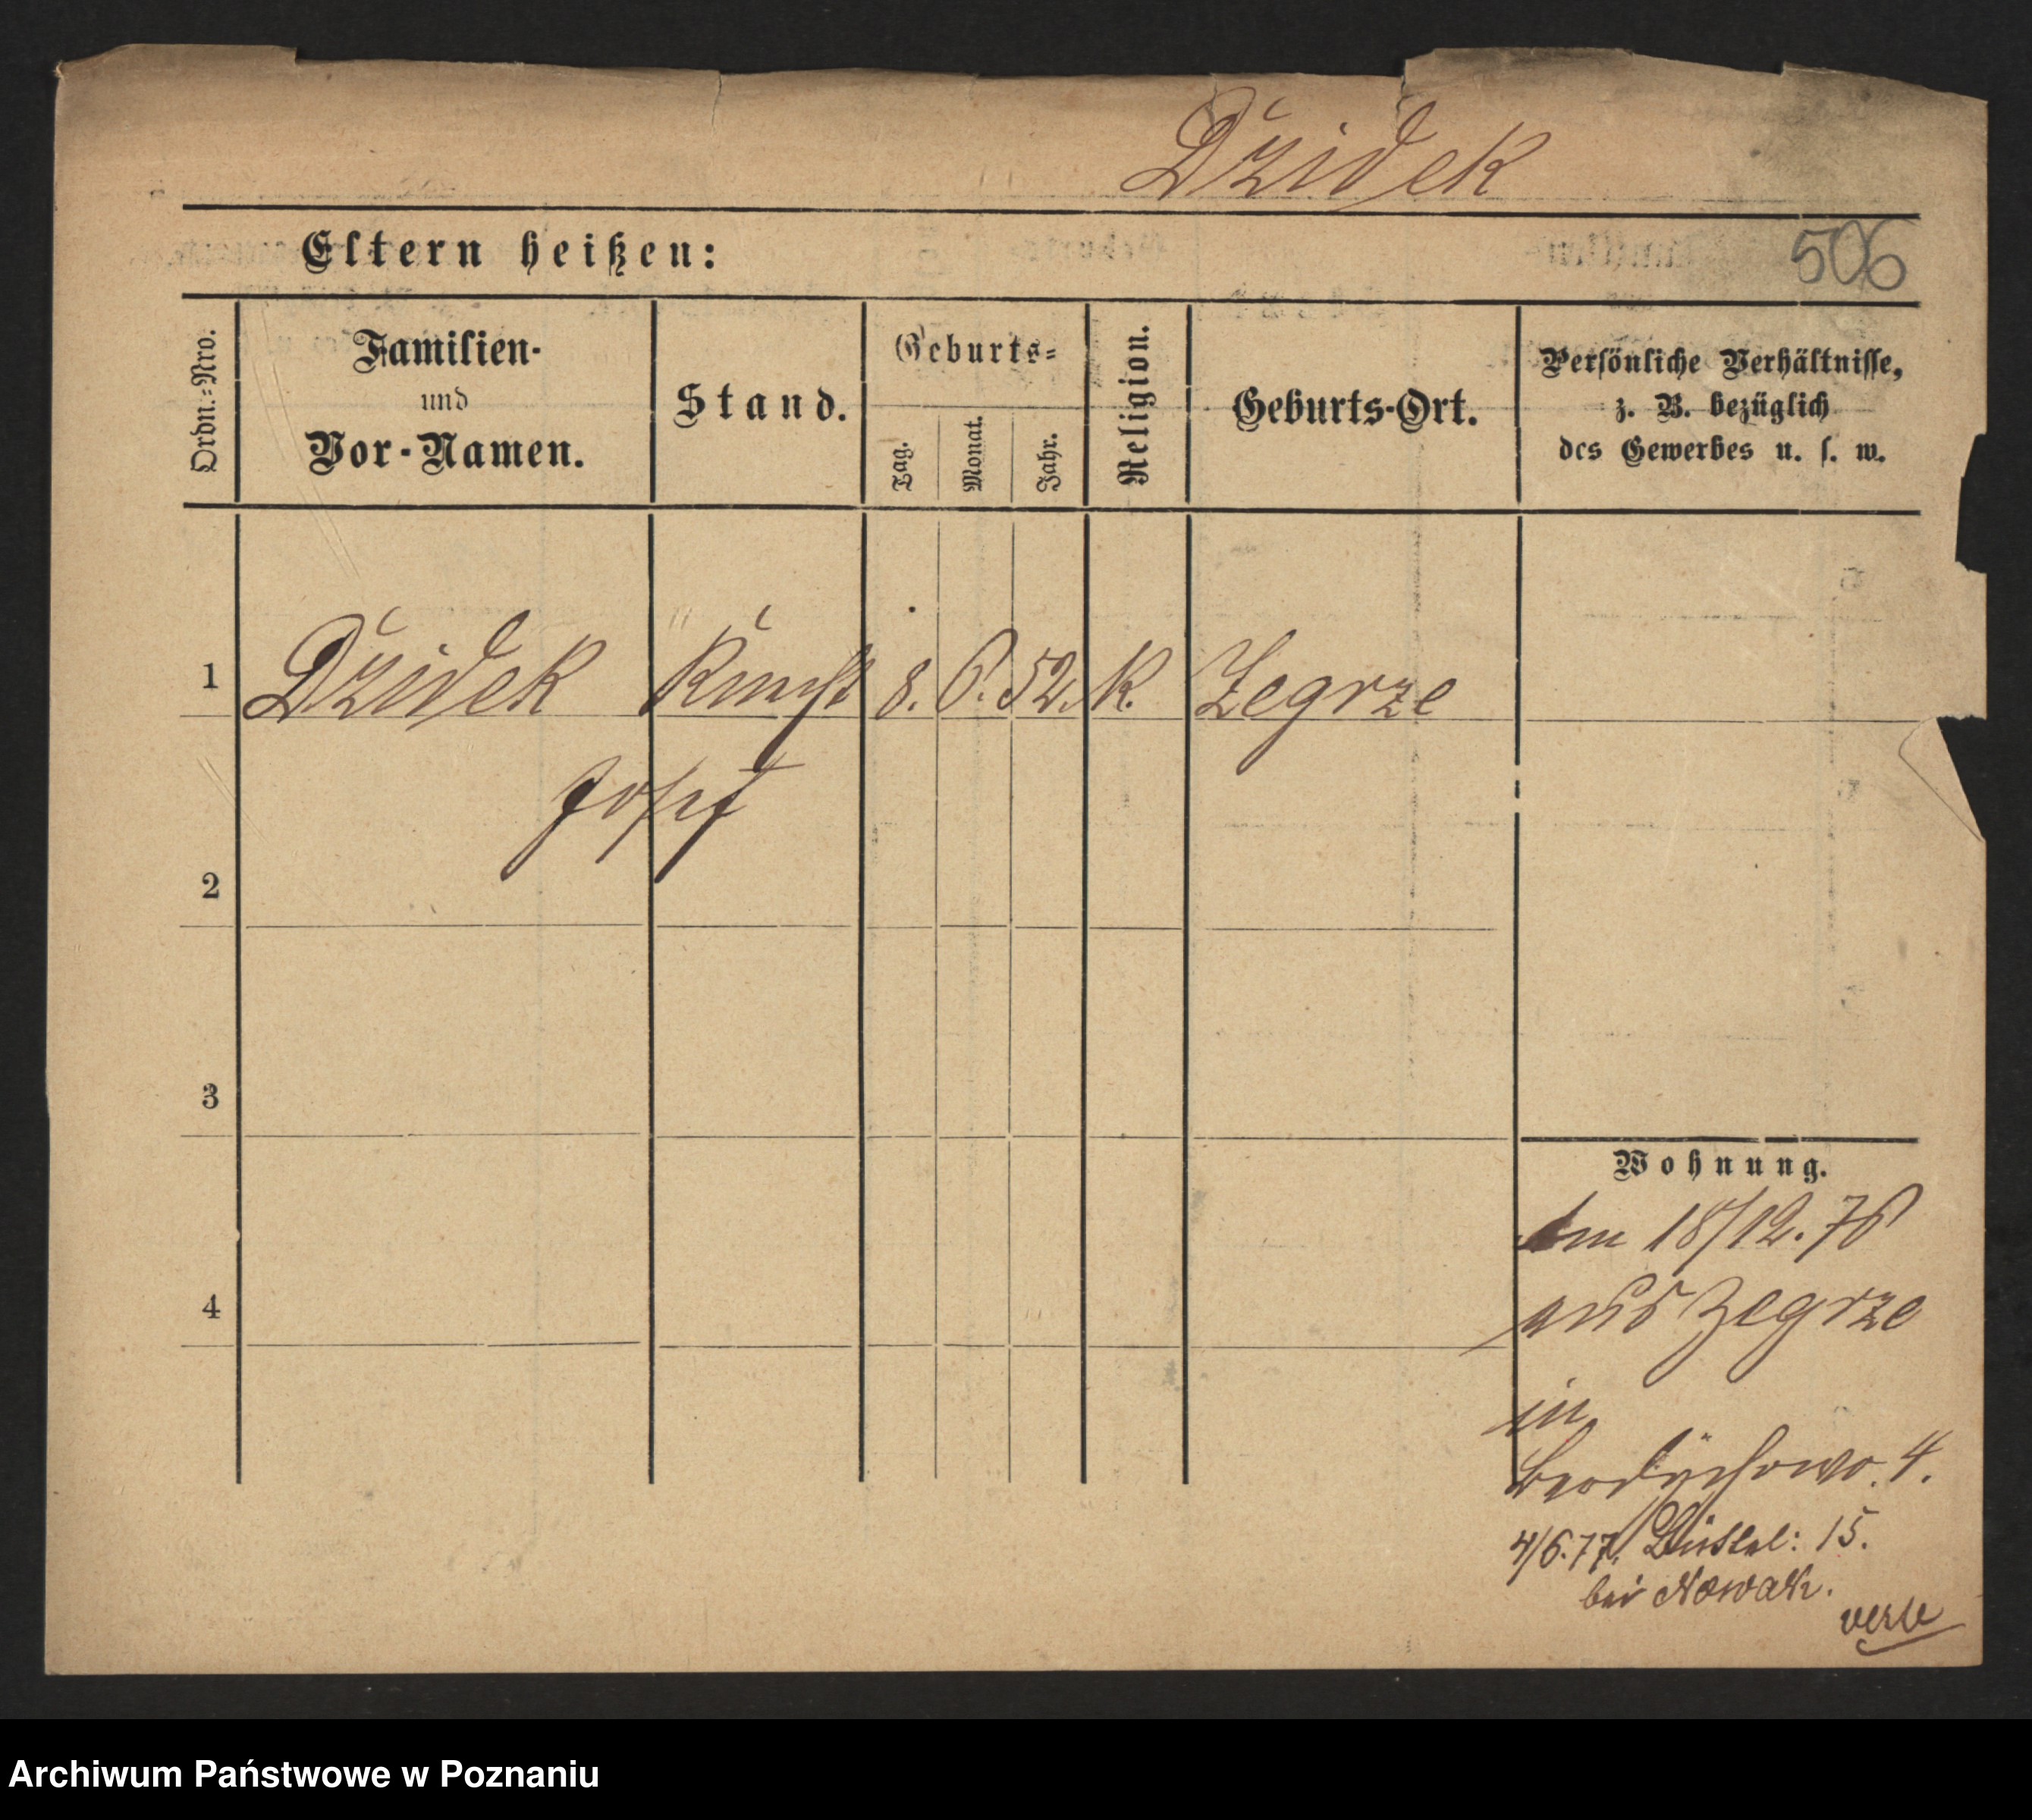 Dzidek
Eltern heißen:
506
Ordn.-Nro.
Familien-
und
Vor-Namen.
Stand.
Geburts-
Tag.
Monat.
Jahr.
Religion.
Geburts-Ort.
Persönliche Verhältnisse,
z. B. bezüglich
des Gewerbes u. s. w.
1 Dzidek Knecht 8. 6. 52. K. Zegrze
Josef
2
3
4
Wohnung.
am 18/12. 76
aus Zegrze
in
4.
4/6. 77, 15.
bei Nowak.
Archiwum Państwowe w Poznaniu